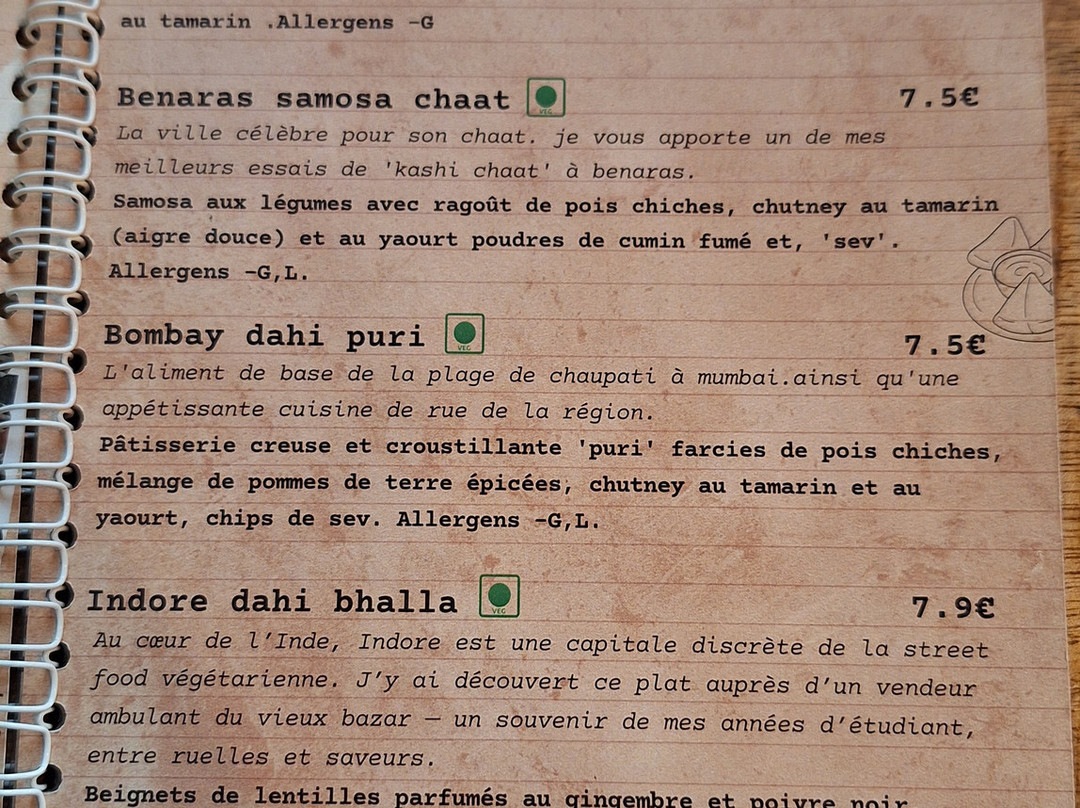 au tamarin .Allergens -G
Benaras samosa chaat VEG 7.5€
La ville célèbre pour son chaat. je vous apporte un de mes
meilleurs essais de 'kashi chaat' à benaras.
Samosa aux légumes avec ragoût de pois chiches, chutney au tamarin
(aigre douce) et au yaourt poudres de cumin fumé et, 'sev'.
Allergens -G,L.
Bombay dahi puri VEG 7.5€
L'aliment de base de la plage de chaupati à mumbai.ainsi qu'une
appétissante cuisine de rue de la région.
Pâtisserie creuse et croustillante 'puri' farcies de pois chiches,
mélange de pommes de terre épicées, chutney au tamarin et au
yaourt, chips de sev. Allergens -G,L.
Indore dahi bhalla VEG 7.9€
Au cœur de l’Inde, Indore est une capitale discrète de la street
food végétarienne. J’y ai découvert ce plat auprès d’un vendeur
ambulant du vieux bazar — un souvenir de mes années d’étudiant,
entre ruelles et saveurs.
Beignets de lentilles parfumés au gingembre et poivre noir